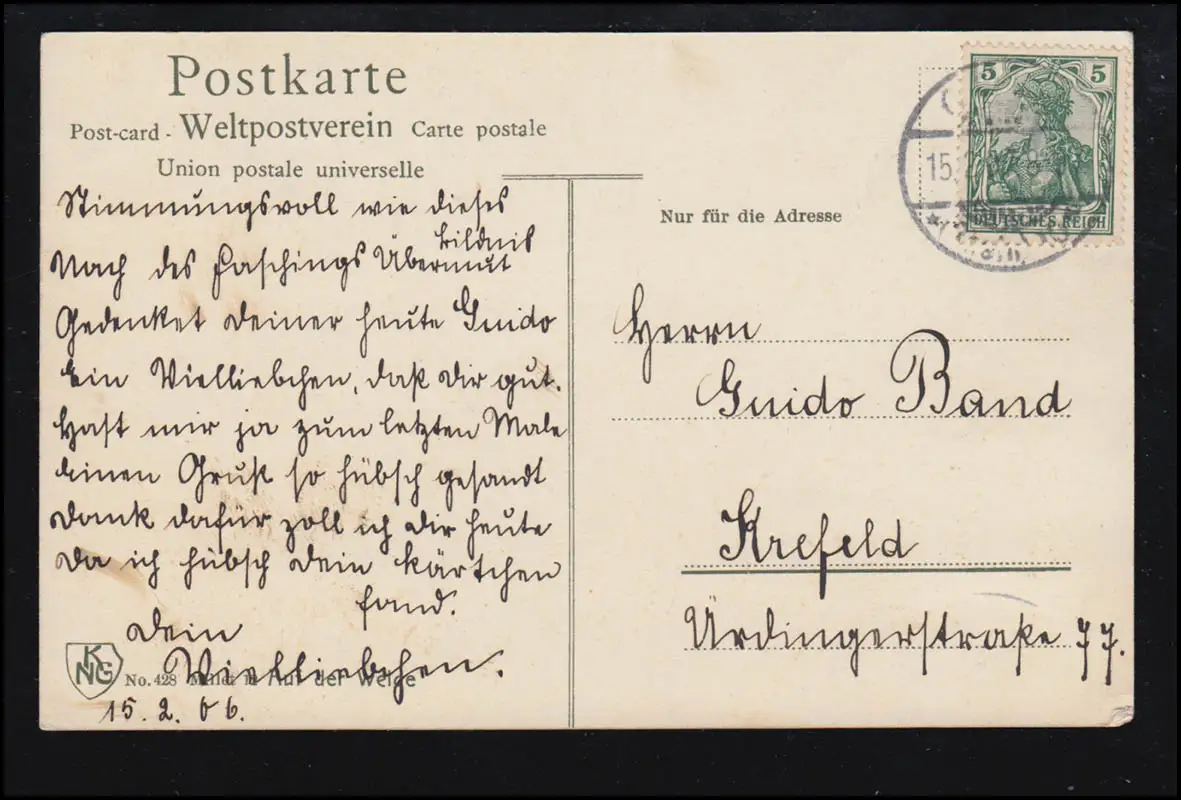 Postkarte
Post-card - Weltpostverein Carte postale
Union postale universelle
Stimmungsvoll wie dieses
bildnis
Nach des Faschings Übermut
Gedenket deiner heute Guido
Ein Vielliebchen, daß dir gut.
Hast mir ja zum letzten Male
Einen Gruß so hübsch gesandt
Dank dafür zoll ich dir heute
Da ich hübsch dein kärtchen
fand.
Dein
Vielliebchen.
KNG
No. 428 Auf der Weide
15. 2. 06.
5 5
DEUTSCHES REICH
15.
Nur für die Adresse
Herrn
Guido Band
Krefeld
Ürdingerstraße 77.